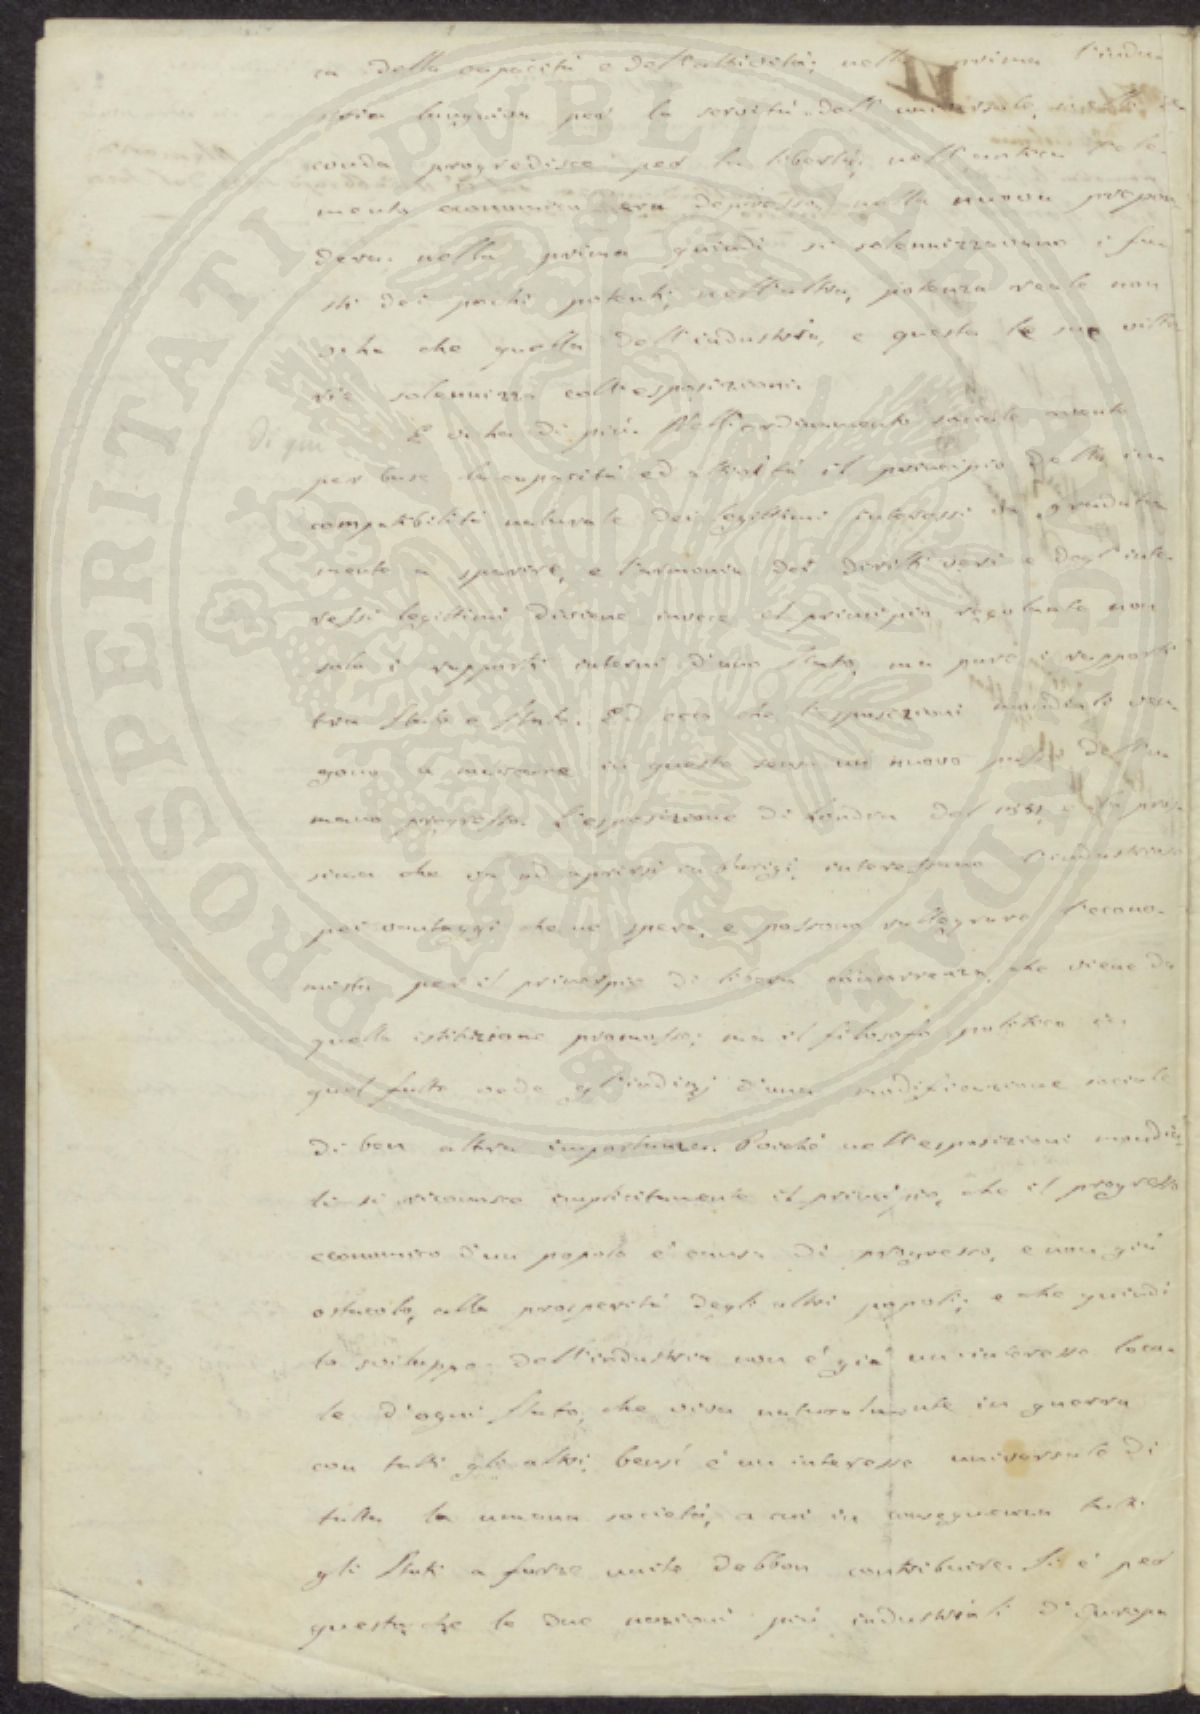 ca della capacità e dell'attività; nella prima l'indu-
stria languiva per la servitù dell'universale,
conda progredisce per la libertà; nell'antica l'ele-
mento economico era depresso, nella nuova prepon
dera. nella prima quindi si solennizzavano i fa-
sti dei pochi potenti, nell'altra, potenza reale non
vi ha che quella dell'industria, e questa le sue vitto
rie solennizza coll'esposizioni.
Di qui
E vi ha di più. Nell'ordinamento sociale avente
per base la capacità ed attività il principio della in
compatibilità naturale dei legittimi interessi va gradata
mente a sparire, e l'armonia dei diritti veri e degl'inte-
ressi legittimi diviene invece il principio regolante non
solo i rapporti interni d'uno Stato, ma pure i rapporti
tra Stato e Stato. Ed ecco che l'esposizioni mondiali ven-
gono a marcare in questo senso un nuovo passo dell'u-
mano progresso. L'esposizione di Londra del 1851, e la pros-
sima che va ad aprirsi in Parigi, interessano l'industriale
pei vantaggi che ne spera, e possono rallegrare l'econo-
mista per il principio di libera concorrenza, che viene da
quella istituzione promosso; ma il filosofo politico in
quel fatto vede gl'indizj d'una modificazione sociale
di ben altra importanza. Poichè nell'esposizioni mondia-
li si riconosce implicitamente il principio, che il progresso
economico d'un popolo è causa di progresso, e non già
ostacolo, alla prosperità degli altri popoli; e che quindi
lo sviluppo dell'industria non è già un interesse loca-
le d'ogni Stato, che viva naturalmente in guerra
con tutti gli altri, bensì è un interesse universale di
tutta la umana società, a cui in conseguenza tutti
gli Stati a forze unite debbon contribuire. Si è per
questo che le due nazioni più industriali d'Europa